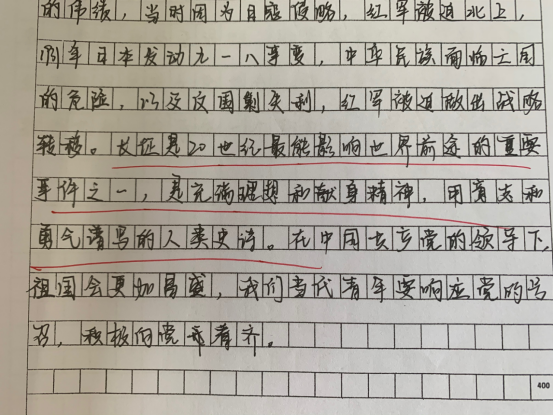 的伟绩，当时因为日寇侵略，红军被迫北上，
1931年日本发动九一八事变，中华民族面临亡国
的危险，以及反围剿失利，红军被迫做出战略
转移。长征是20世纪最能影响世界前途的重要
事件之一，是充满理想和献身精神，用意志和
勇气谱写的人类史诗。在中国共产党的领导下，
祖国会更加昌盛，我们当代青年要响应党的号
召，积极向党看齐。
400